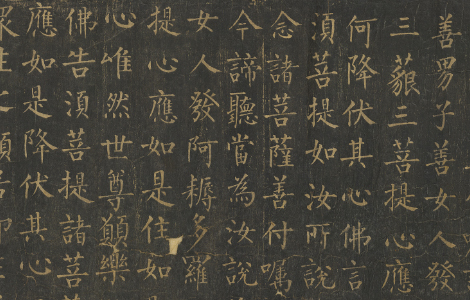 善男子善女人發
三藐三菩提心應
何降伏其心佛言
須菩提如汝所說
念諸菩薩善付囑
今諦聽當為汝說
女人發阿耨多羅
提心應如是住如
心唯然世尊願樂
佛告須菩提諸菩
應如是降伏其心